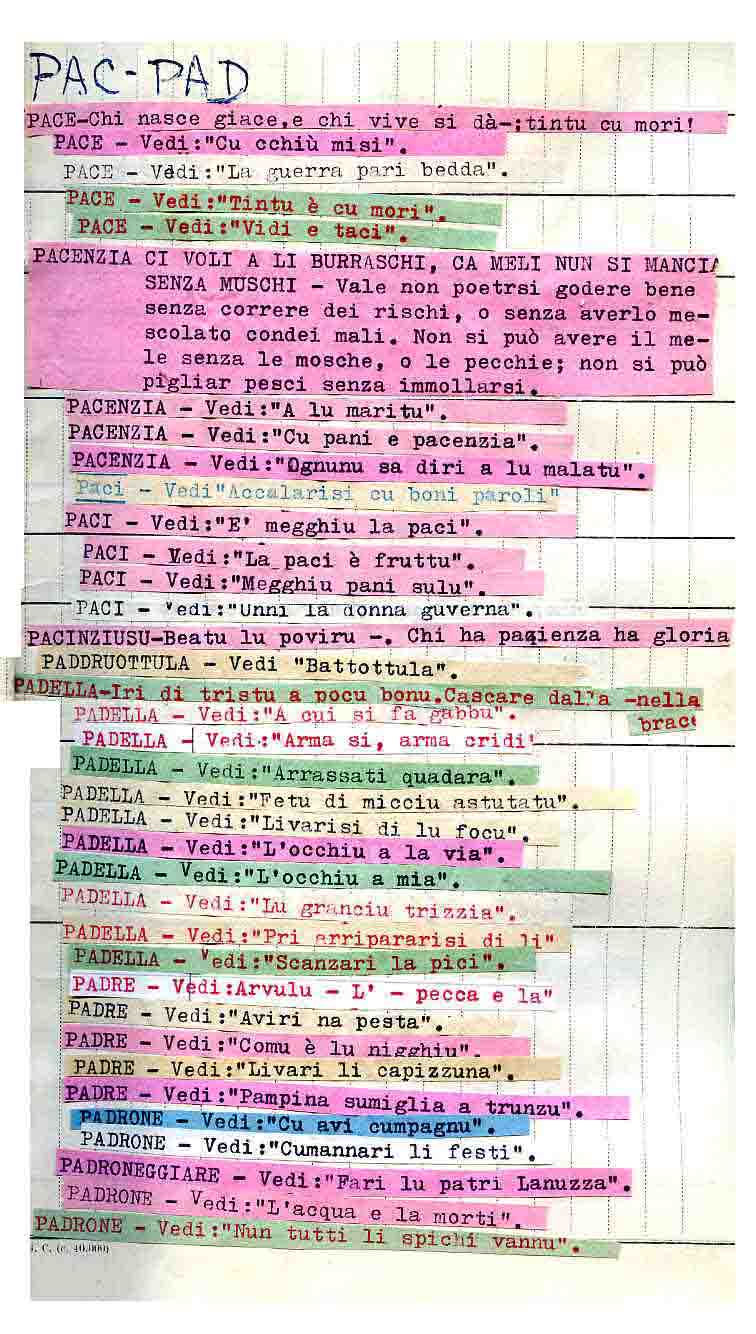 PAC-PAD
PACE-Chi nasce giace,e chi vive si dà-;tintu cu mori!
PACE - Vedi:"Cu cchiù misi".
PACE - Vedi:"La guerra pari bedda".
PACE - Vedi:"Tintu è cu mori".
PACE - Vedi:"Vidi e taci".
PACENZIA CI VOLI A LI BURRASCHI, CA MELI NUN SI MANCIA
SENZA MUSCHI - Vale non poetrsi godere bene
senza correre dei rischi, o senza averlo me-
scolato condei mali. Non si può avere il me-
le senza le mosche, o le pecchie; non si può
pigliar pesci senza immollarsi.
PACENZIA - Vedi:"A lu maritu".
PACENZIA - Vedi:"Cu pani e pacenzia".
PACENZIA - Vedi:"Ognunu sa diri a lu malatu".
Paci - Vedi"Accalarisi cu boni paroli"
PACI - Vedi:"E' megghiu la paci".
PACI - Vedi:"La paci è fruttu".
PACI - Vedi:"Megghiu pani sulu".
PACI - Vedi:"Unni la donna guverna".
PACINZIUSU-Beatu lu poviru -. Chi ha pazienza ha gloria
PADDRUOTTULA - Vedi "Battottula".
PADELLA-Iri di tristu a pocu bonu.Cascare dal'a -nella
brace
PADELLA - Vedi:"A cui si fa gabbu".
PADELLA - Vedi:"Arma si, arma cridi"
PADELLA - Vedi:"Arrassati quadara".
PADELLA - Vedi:"Fetu di micciu astutatu".
PADELLA - Vedi:"Livarisi di lu focu".
PADELLA - Vedi:"L'occhiu a la via".
PADELLA - Vedi:"L'occhiu a mia".
PADELLA - Vedi:"Lu granciu trizzia".
PADELLA - Vedi:"Pri arripararisi di li"
PADELLA - Vedi:"Scanzari la pici".
PADRE - Vedi:Arvulu - L' - pecca e la"
PADRE - Vedi:"Aviri na pesta".
PADRE - Vedi:"Comu è lu nigghiu".
PADRE - Vedi:"Livari li capizzuna".
PADRE - Vedi:"Pampina sumiglia a trunzu".
PADRONE - Vedi:"Cu avi cumpagnu".
PADRONE - Vedi:"Cumannari li festi".
PADRONEGGIARE - Vedi:"Fari lu patri Lanuzza".
PADRONE - Vedi:"L'acqua e la morti".
PADRONE - Vedi:"Nun tutti li spichi vannu".
. C. (c. 40.000)